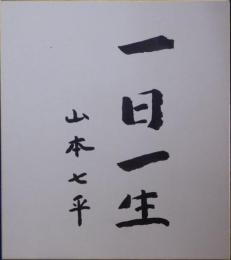 一日一生
山本七平